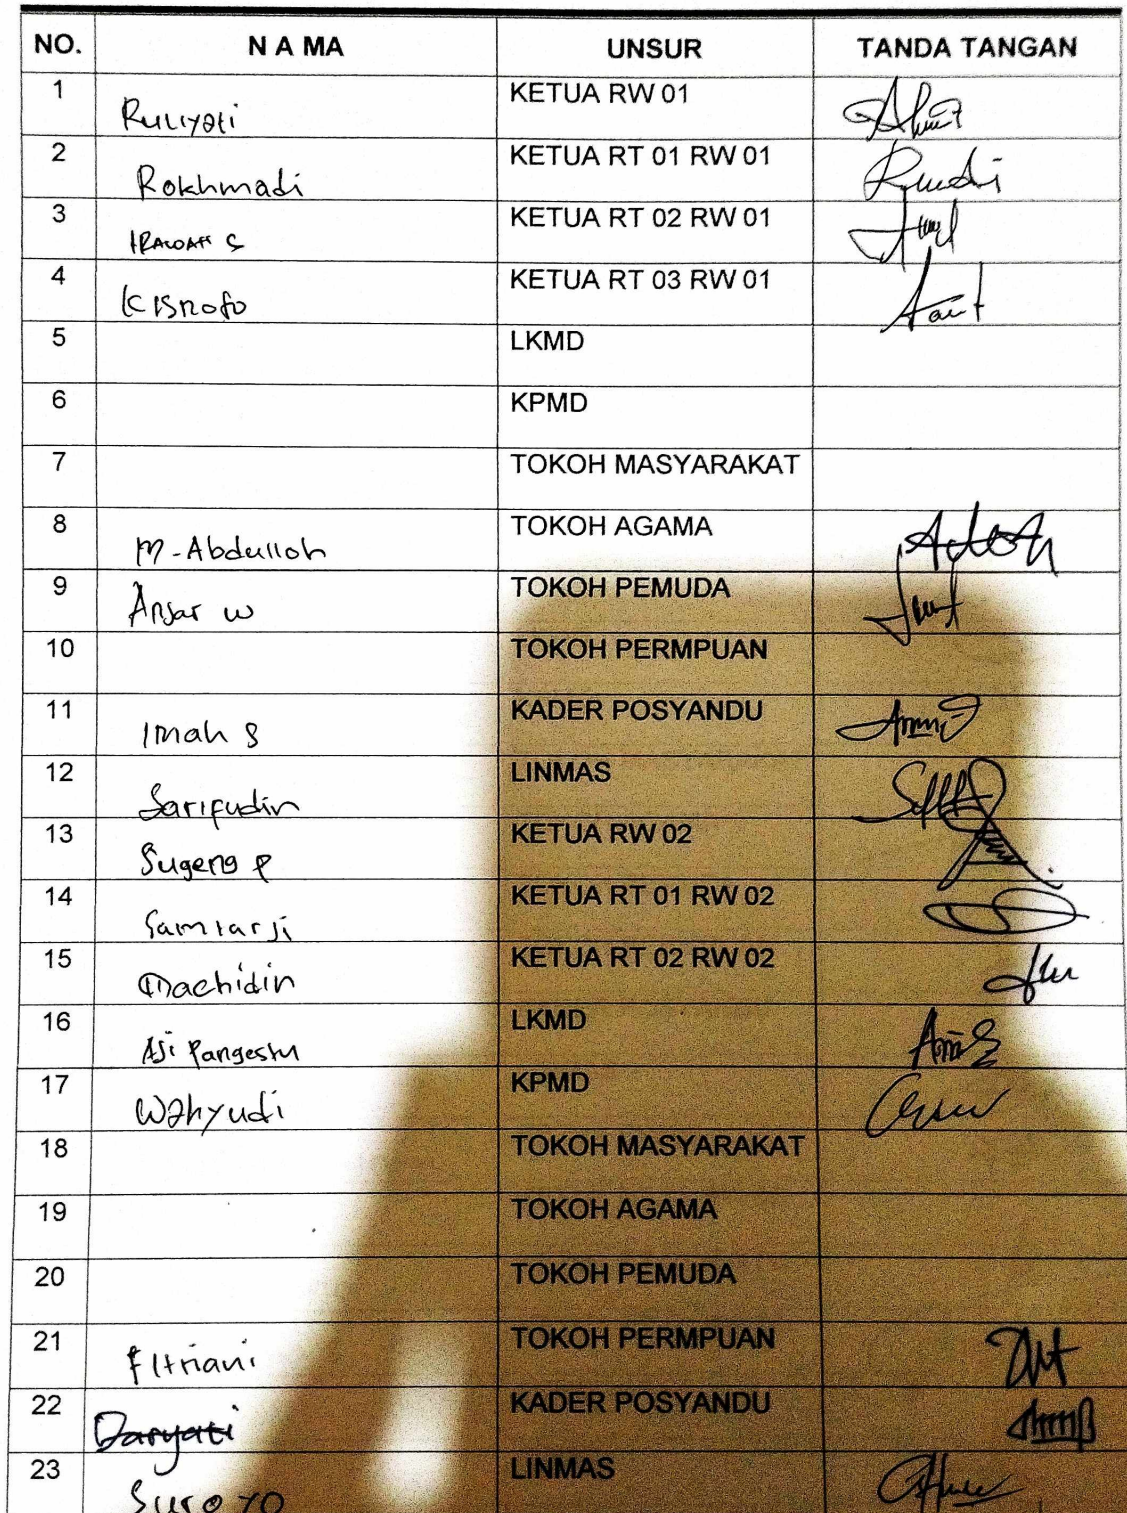 NO. N A MA UNSUR TANDA TANGAN
1 Ruliyati KETUA RW 01
2 Rokhmadi KETUA RT 01 RW 01
3 IRAWAN S KETUA RT 02 RW 01
4 KISROFO KETUA RT 03 RW 01
5 LKMD
6 KPMD
7 TOKOH MASYARAKAT
8 M-Abdulloh TOKOH AGAMA
9 Anjar W TOKOH PEMUDA
10 TOKOH PERMPUAN
11 Imah S KADER POSYANDU
12 Sarifudin LINMAS
13 Sugeng P KETUA RW 02
14 Samiarji KETUA RT 01 RW 02
15 Machidin KETUA RT 02 RW 02
16 Aji Pangestu LKMD
17 Wahyudi KPMD
18 TOKOH MASYARAKAT
19 TOKOH AGAMA
20 TOKOH PEMUDA
21 Fitriani TOKOH PERMPUAN
22 Daryati KADER POSYANDU
23 Suroyo LINMAS